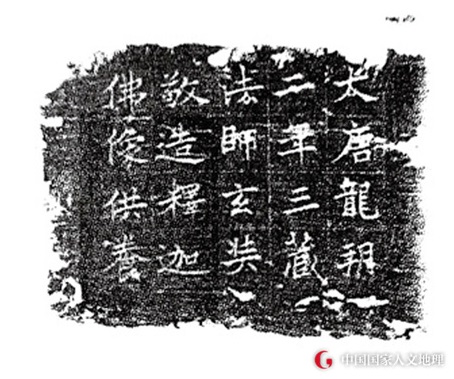 大唐龍朔
二年三藏
法師玄奘
敬造釋迦
佛像供養
中国国家人文地理